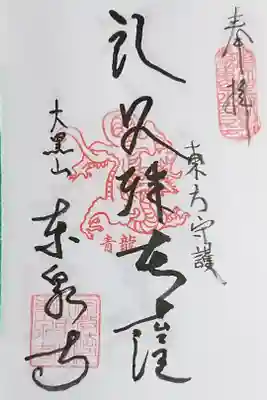 奉拝
東方守護
文殊菩薩
青龍
大黒山
東泉寺